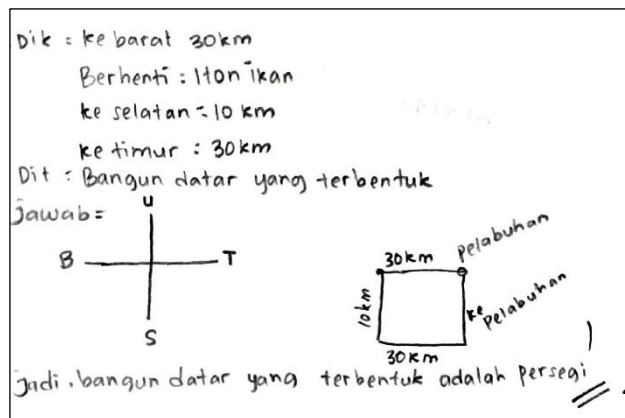 Dik : ke barat 30km
Berhenti : 1ton ikan
ke selatan = 10 km
ke timur : 30km
Dit : Bangun datar yang terbentuk
Jawab =
U
B
T
S
30km
Pelabuhan
10km
ke Pelabuhan
30km
Jadi, bangun datar yang terbentuk adalah persegi